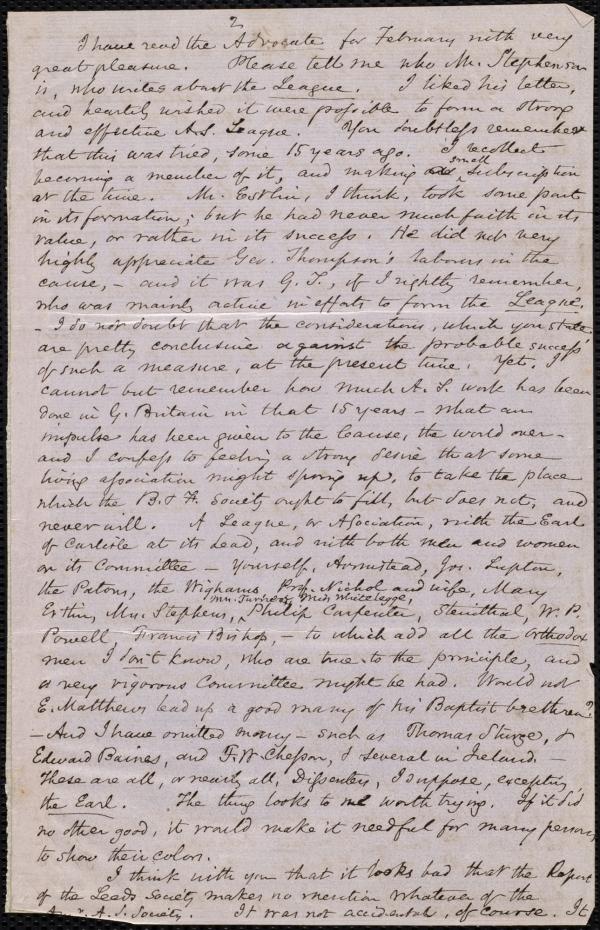 2
I have read the Advocate for February with very
great pleasure. Please tell me who Mr. Stephenson
is, who writes about the League. I liked his letter,
and heartily wished it were possible to form a strong
and effective A.S. League. You doubtless remember
that this was tried, some 15 years ago. I recollect
becoming a member of it, and making small subscription
at the time. Mr. Estlin, I think, took some part
in its formation; but he had never much faith in its
value, or rather in its success. He did not very
highly appreciate Geo. Thompson's labours in the
cause, – and it was G. T., if I rightly remember,
who was mainly active in efforts to form the League.
– I do not doubt that the considerations, which you state,
are pretty conclusive against the probable success
of such a measure, at the present time. Yet, I
cannot but remember how much A. S. work has been
done in G. Britain in that 15 years – what an
impulse has been given to the Cause, the world over –
and I confess to feeling a strong desire that some
living association might spring up, to take the place
which the B. & F. Society ought to fill, but does not, and
never will. A League, or Association, with the Earl
of Carlisle at its head, and with both men and women
on its Committee – yourself, Armistead, Jos. Lupton,
the Patons, the Wighams, Prof. Nichol and wife, Mary
Estlin, Mrs. Stephens, Mr. Turner, Miss Whitelegge, Philip Carpenter, Steinthal, W. P.
Powell, Francis Bishop, – to which add all the orthodox
men I don't know, who are true to the principle, and
a very vigorous Committee might be had. Would not
E. Matthews lead up a good many of his Baptist brethren?
– And I have omitted many – such as Thomas Sturge, &
Edward Baines, and F. W. Chesson, & several in Ireland. –
These are all, or nearly all, Dissenters, I suppose, excepting
the Earl. The thing looks to me worth trying. If it did
no other good, it would make it needful for many persons
to show their colors.
I think with you that it looks bad that the Report
of the Leeds Society makes no mention whatever of the
Amr. A. S. Society. It was not accidental, of course. It